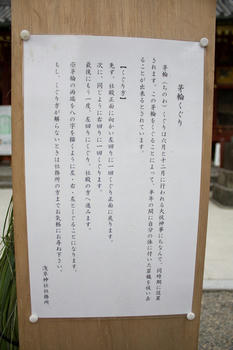 茅輪くぐり
茅輪（ちのわ）くぐりは六月と十二月に行われる大祓神事にちなんで、同時期に設置
されます。この茅輪をくぐることによって、半年の間に自分の体に付いた罪穢を祓い去
ることが出来るとされています。
【くぐり方】
先ず、社殿正面に向かい左回りに一回くぐり正面に戻ります。
次に、同じように右回りに一回くぐります。
最後にもう一度、左回りにくぐり、社殿の方へ進みます。
※茅輪の両端を八の字を描くように左・右・左とくぐることになります。
もし、くぐり方が解らないときは社務所の方までお気軽にお尋ね下さい。
浅草神社社務所